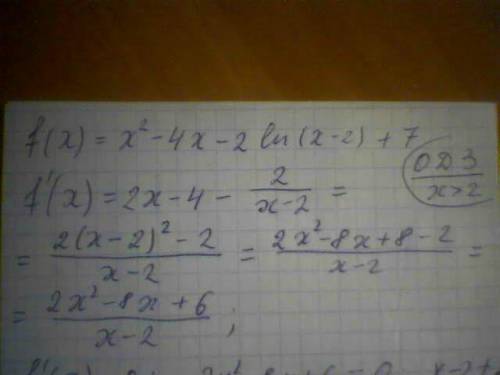 f(x) = x² - 4x - 2 ln(x-2) + 7
f'(x) = 2x - 4 - 2/(x-2) =
ОДЗ
x>2
= (2(x-2)² - 2)/(x-2) = (2x² - 8x + 8 - 2)/(x-2) =
= (2x² - 8x + 6)/(x-2) ;